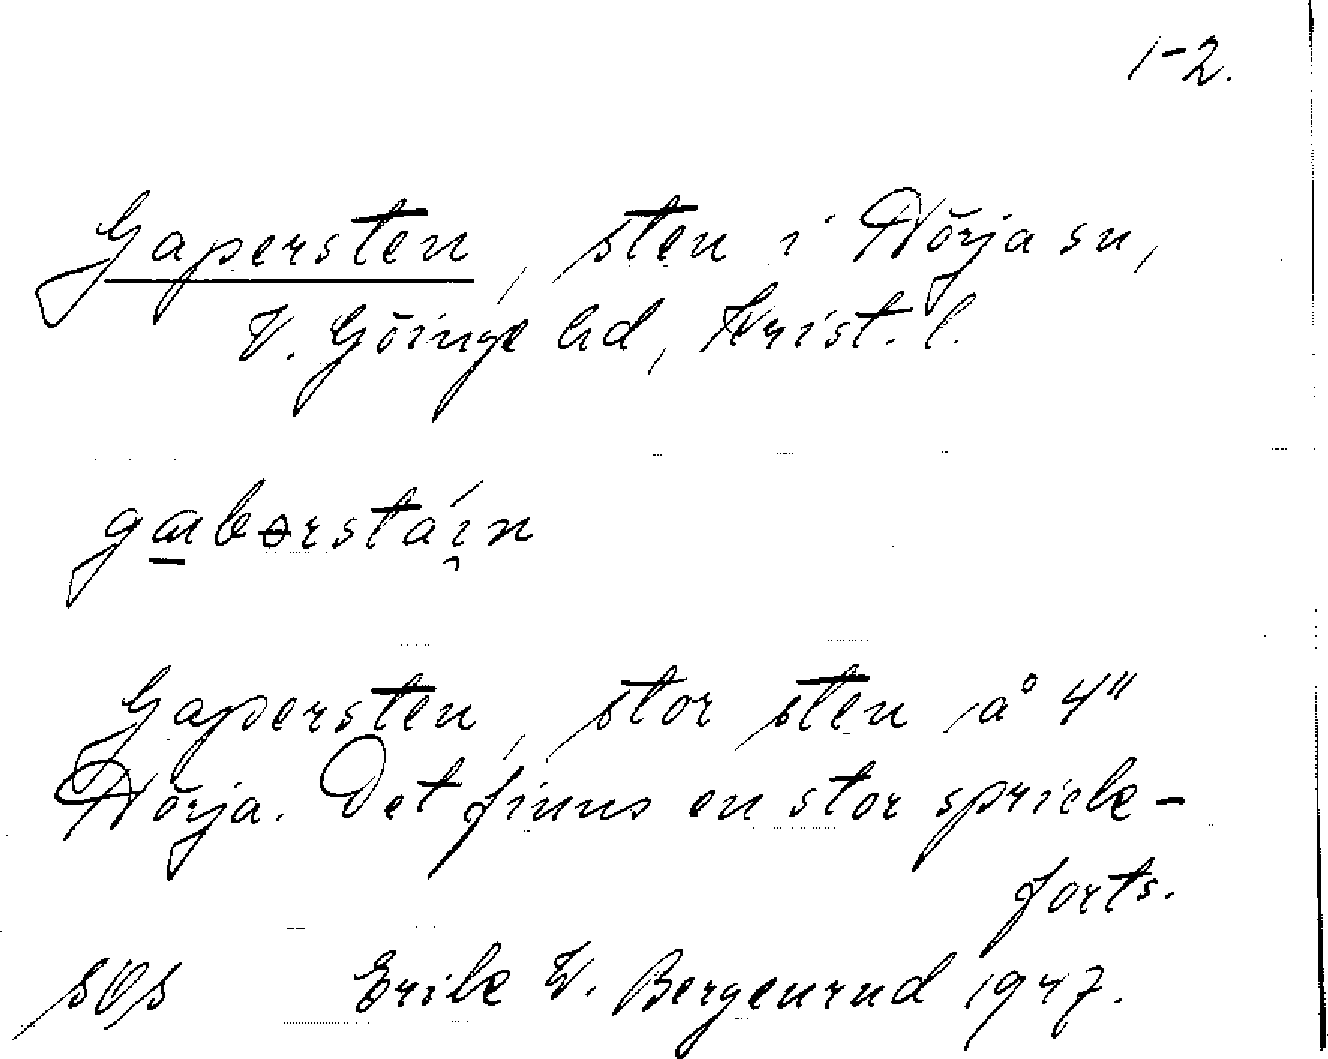 1-2.
Gapersten, sten i Nörja sn,
V. Göinge hd, Krist. l.
gɑbərstáin
Gapersten, stor sten å 4"
Nörja. Det finns en stor sprick-
forts.
SOS Erik W. Bergenrud 1947.